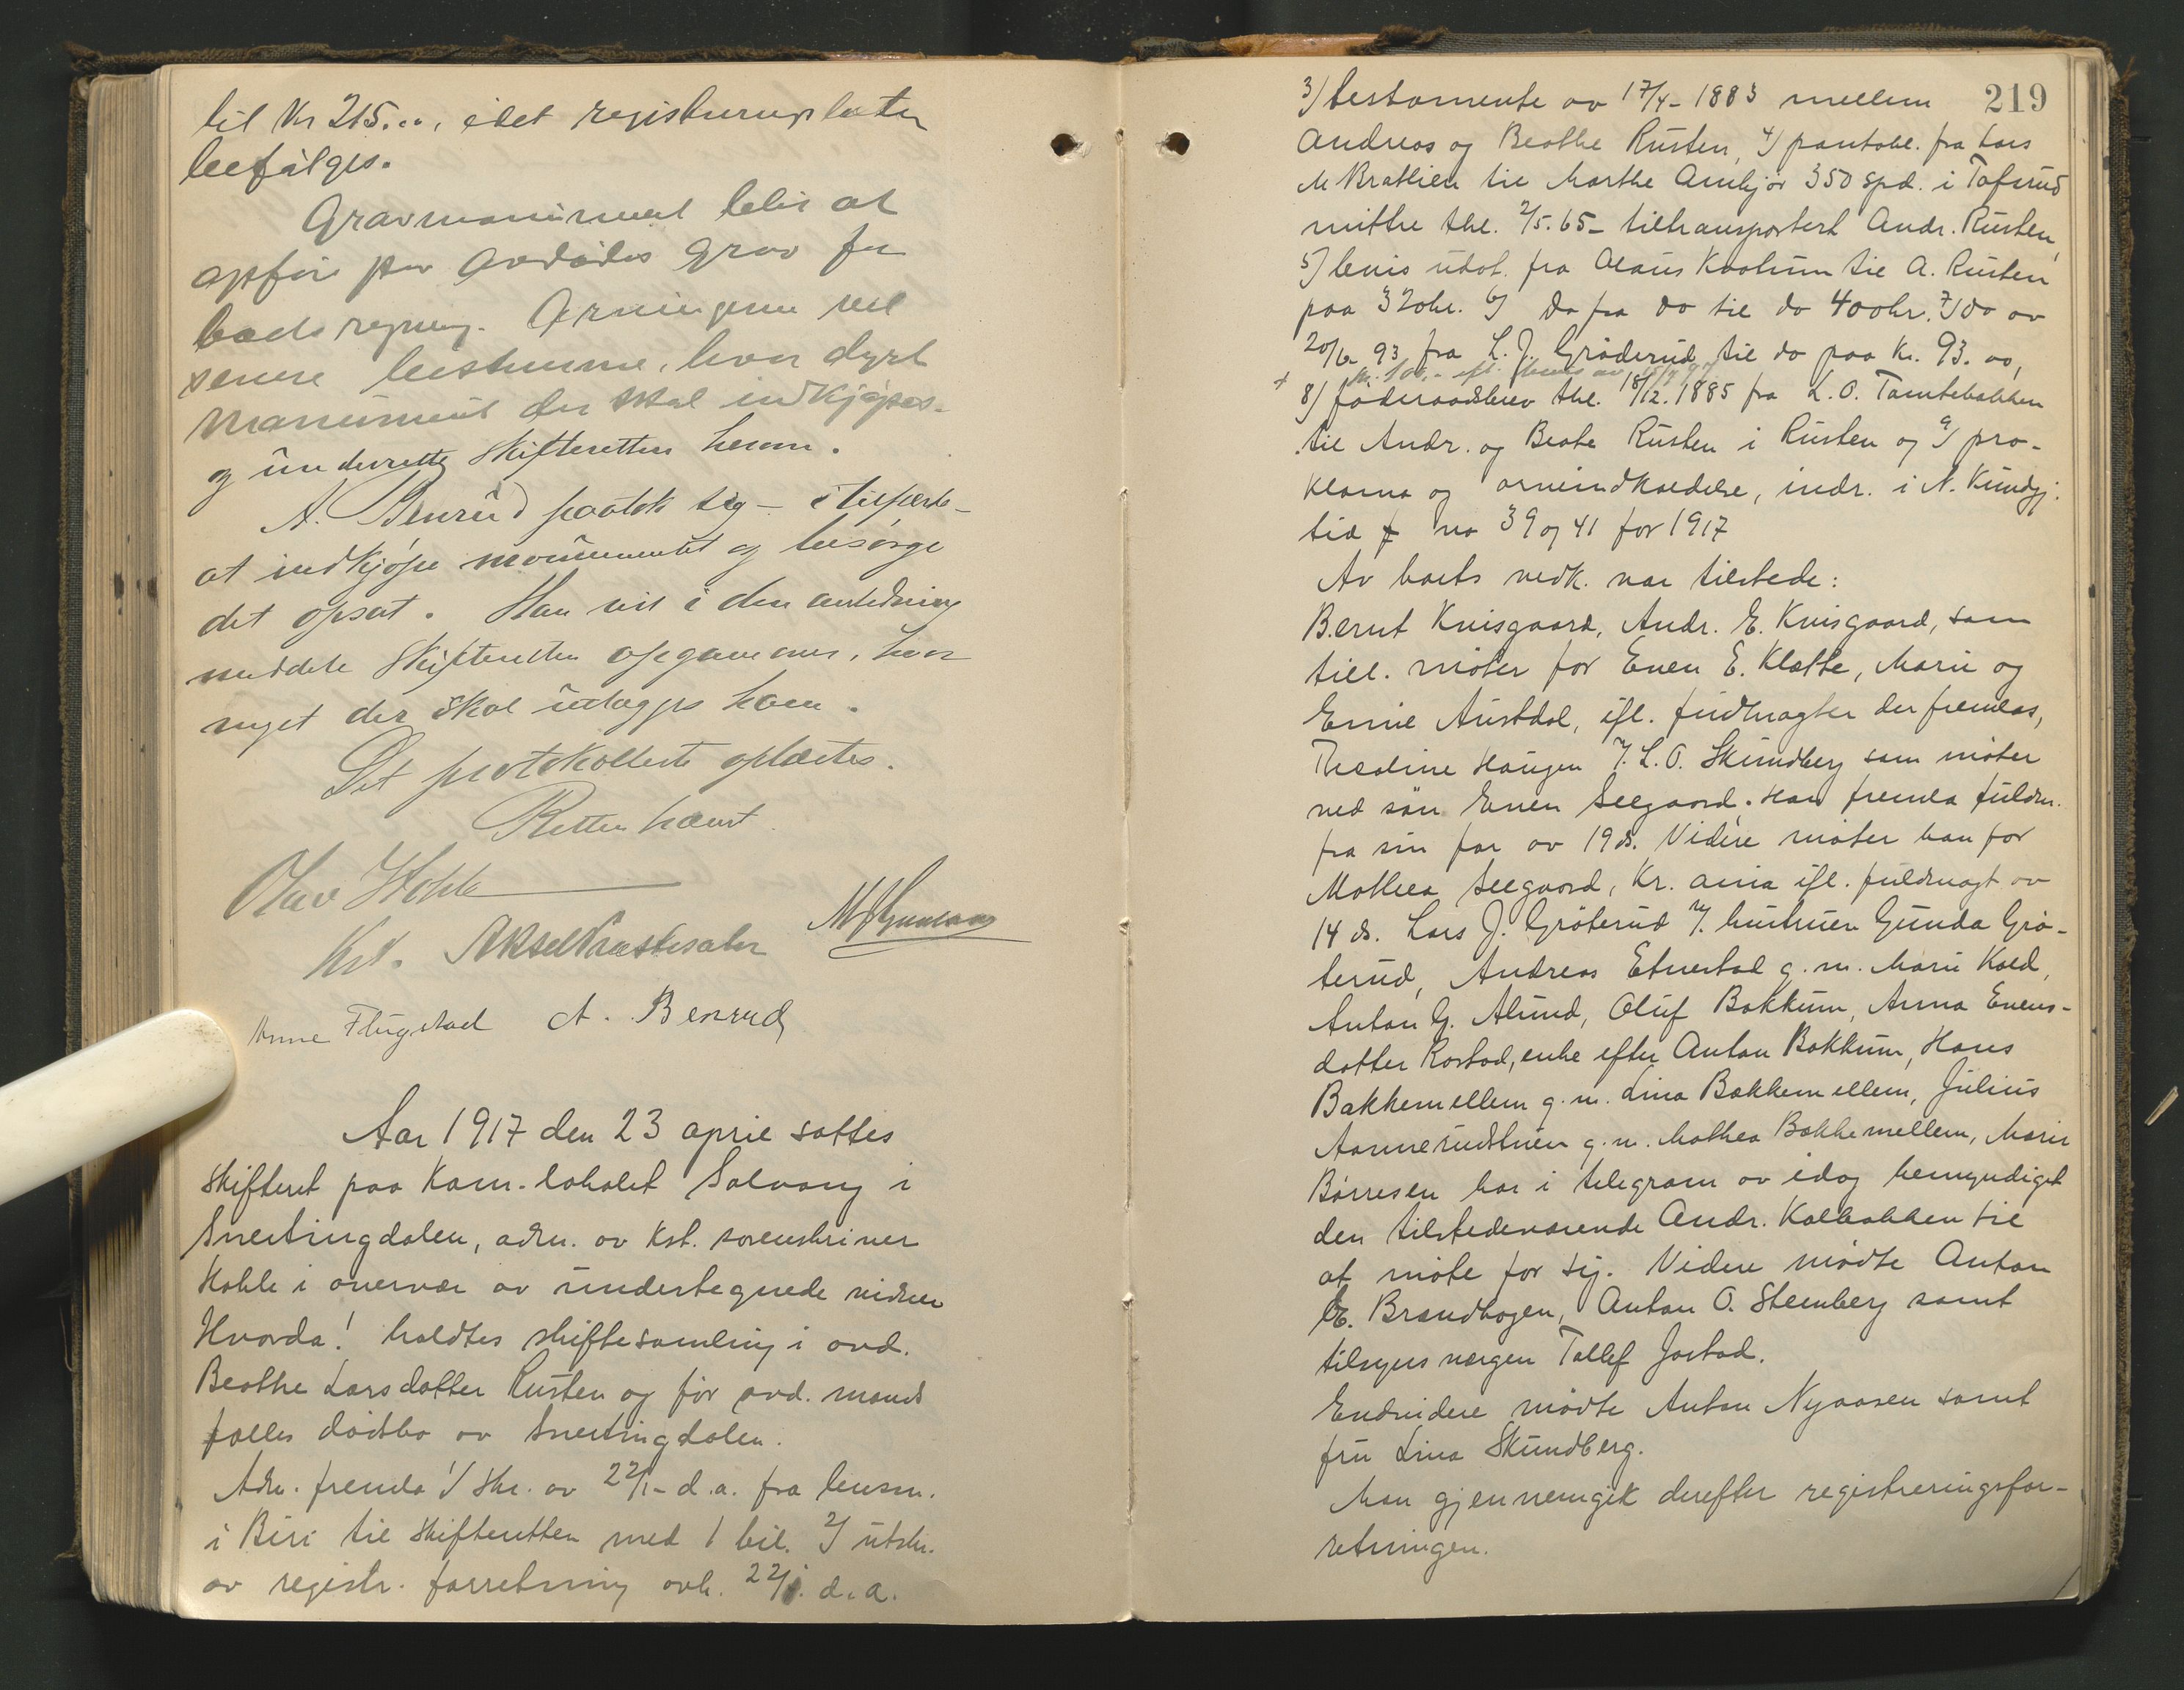 til Kr 215.00, idet registrerings
befølges.
Gravmonument blir at
opføre paa avdødes grav for
boets regning. Arvingene vil
senere bestemme, hvor dyrt
monument der skal indkjøpes
og underrette skifteretten herom.
A. Benrud paatok sig –
at indkjøpe monumentet og besørge
det opsat. Han vil i den anledning
meddele skifteretten opgave over, hvor
meget der skal utlægges ham.
Det protokollerte oplæstes.
Retten hævet
Olav Hohle
Kst. Aksel
Anne Flugstad A. Benrud
Aar 1917 den 23 april sattes
skifteret paa Kom-lokalet Solvang i
Snertingdalen, adm. av Kst. sorenskriver
Hohle i overvær av undertegnede vidner
Hvorda! holdtes skiftesamling i avd.
Beathe Larsdatter Rusten og før avd. mands
fælles dødsbo av Snertingdalen.
Adm. fremla 1/ skr. av 22/1- d.a. fra lensm.
i Biri til skifteretten med 1 bil. 2/ utskr.
av registr. forretning avh. 22/1. d.a.
219
3/ testamente av 17/4- 1883 mellem
Andreas og Beathe Rusten, 4/ pantobl. fra Lars
M Bratlien til Marthe Amhjør 350 spd. i Tofsrud
mittre thl. 2/5.65– tiltransportert Andr. Rusten,
5/ bevis utst. fra Olaus Kvolum til A. Rusten
paa 320kr. 6/ Do fra do til do 400kr. 7/ do av
20/6 93 fra L. J. Grøderud til do paa Kr. 93.00,
+ Kr. 100,-
8/ føderaadsbrev thl. 18/12.1885 fra L. O. Tamtebakken
til Andr. og Beate Rusten i Rusten og 9/ pro-
klama og arveindkaldelse, indr. i N. Kundgj.
tid no 39 og 41 for 1917
Av boets vedk. var tilstede:
Bernt Kvisgaard, Andr. E. Kvisgaard, som
till. møter for Even E. Klætte, Marie og
Emie Austdal, ifl. fuldmagter der fremlas,
Theoline Haugen v/ L. O. Skundberg som møter
ved søn Even Seegaard. Han fremla fuldm.
fra sin far av 19 ds. Videre møter han for
Mathea Seegaard, Kr. ania ifl. fuldmagt av
14 ds. Lars J. Grøterud v/ hustruen Gunda Grø-
terud, Andreas Etnestad g. m. Marie Kold,
Anton G. Alund, Oluf Bakkum, Anna Evens-
datter Rostad, enke efter Anton Bakkum, Hans
Bakkemellem g. m. Lina Bakkemellem, Julius
Aannerudstuen g. m. Mathea Bakkemellem, Marie
Børresen har i telegram av idag bemyndiget
den tilstedeværende Andr. Kolbakken til
at møte for sig. Videre mødte Anton
E. Brændhagen, Anton O. Stenberg samt
tilsynsvergen Tollef Jastad.
Endvidere mødte Anton Nyaasen samt
fru Lina Skundberg.
Man gjennemgik derefter registreringsfor-
retningen.